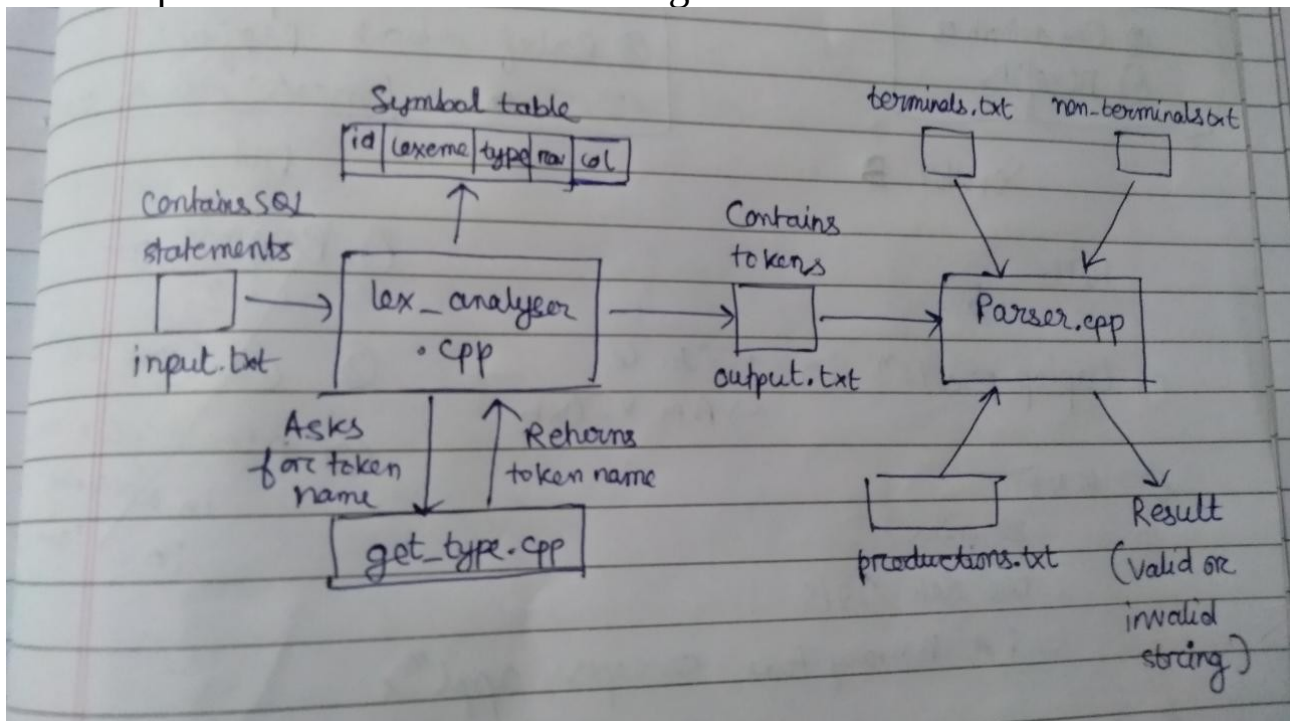 Symbol table
id lexeme type row col
terminals.txt
non_terminals.txt
Contains SQL
statements
input.txt
lex_analyser
.cpp
Contains
tokens
output.txt
Parser.cpp
Asks
for token
name
Returns
token name
get_type.cpp
productions.txt
Result
(valid or
invalid
string)